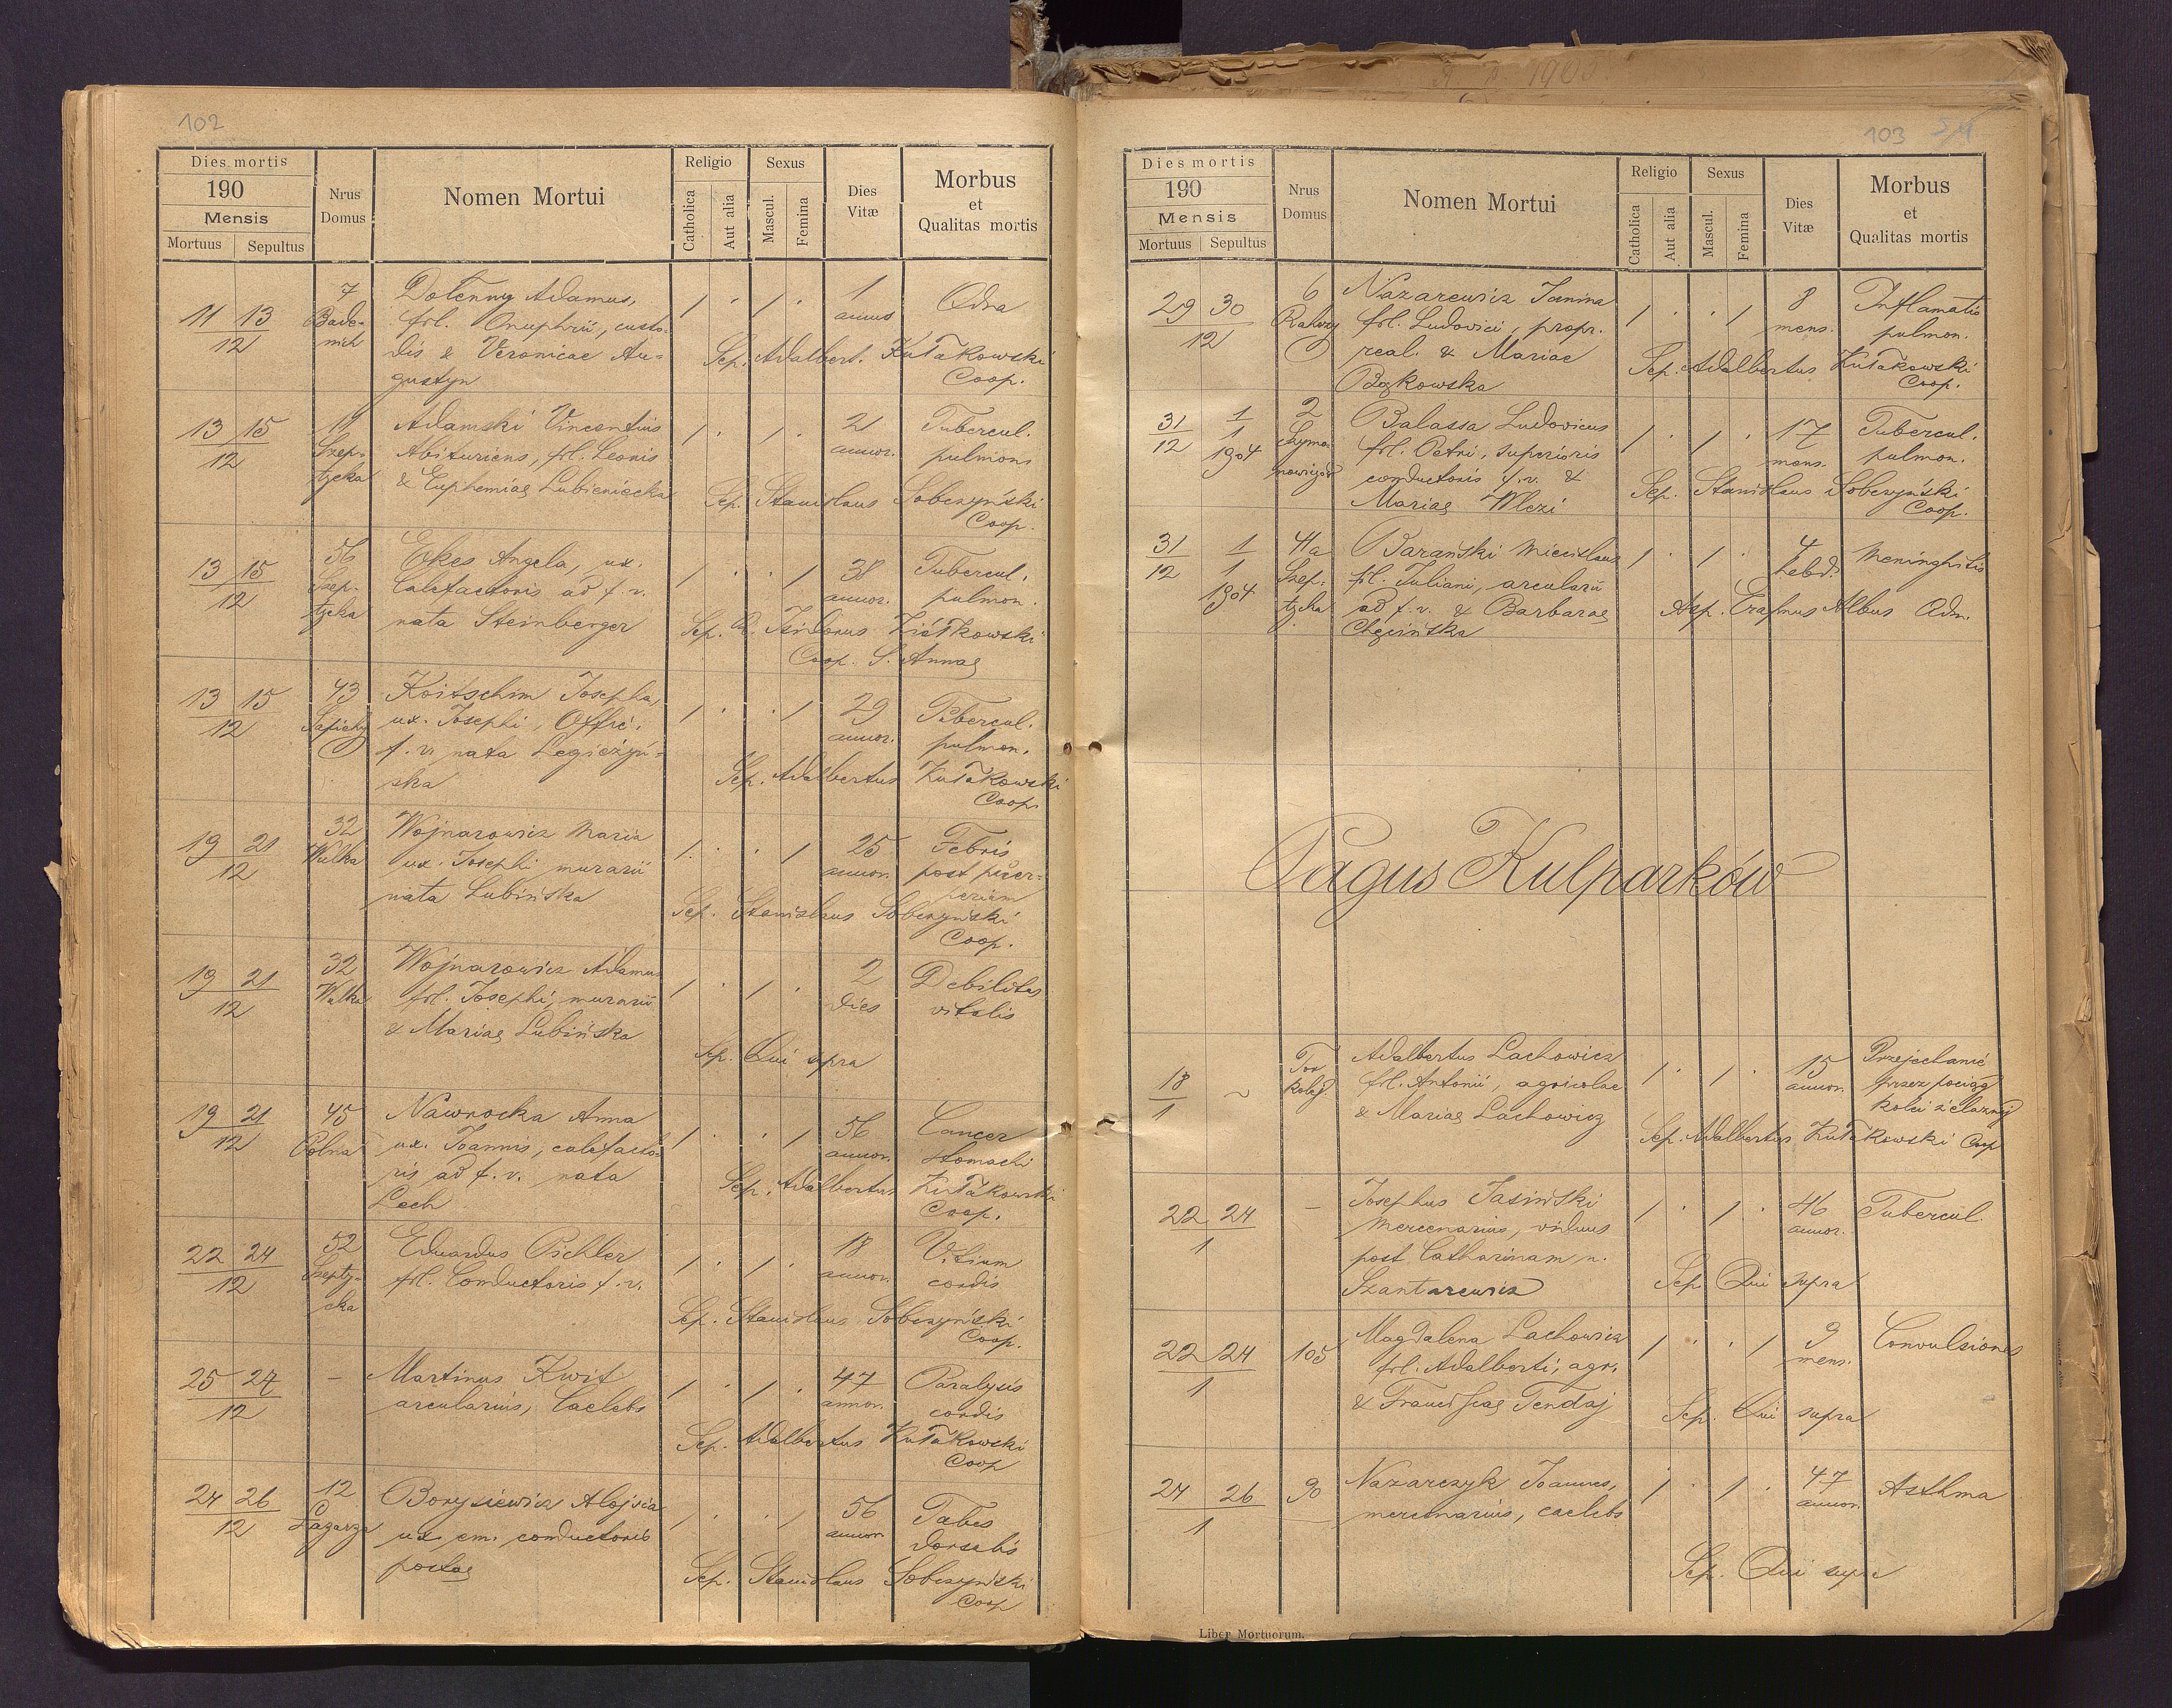 102
Dies mortis
190
Mensis
Mortuus Sepultus
Nrus
Domus
Nomen Mortui
Religio
Catholica
Aut alia
Sexus
Mascul.
Femina
Dies
Vitæ
Morbus
et
Qualitas mortis
11 13
12
7
Bade-
nich
Dolenny Adamus,
fil. Onuphrii, custo-
dis & Veronicae Au-
gustyn
1 . 1 .
1
annus
Odra
Sep. Adalbert. Kułakowski
Coop.
13 15
12
11
Szep-
tycka
Adamski Vincentius
Abituriens, fil. Leonis
& Euphemiae Lubieniecka
1 . 1 .
21
annor.
Tubercul.
pulmions
Sep. Stanislaus Sobczyński
Coop.
13 15
12
56
Szep-
tycka
Ekes Angela, ux.
Calefactoris ad f. v.
nata Steinberger
1 . . 1
38
annor.
Tubercul.
pulmon.
Sep. Isidorus Ziółkowski
Coop. S. Annae
13 15
12
43
Sapiehy
Koitschim Josepha,
ux. Josephi, Offic.
f. v. nata Legieżyń-
ska
1 . . 1
29
annor.
Tubercul.
pulmon.
Sep. Adalbertus Kułakowski
Coop.
19 21
12
32
Wulka
Wojnarowicz Maria
ux. Josephi murarii
nata Lubińska
1 . . 1
25
annor.
Febris
post puer-
perium
Sep. Stanislaus Sobczyński
Coop.
19 21
12
32
Wulka
Wojnarowicz Adamus
fil. Josephi, murarii
& Mariae Lubińska
1 . 1 .
2
dies
Debilitas
vitalis
Sep. Qui supra
19 21
12
45
Polna
Nawrocka Anna
ux. Joannis, calefacto-
ris ad f. v. nata
Lech
1 . . 1
56
annor.
Cancer
stomachi
Sep. Adalbertus Kułakowski
Coop.
22 24
12
52
Szepty-
cka
Eduardus Pichler
fil. Conductoris f. v.
1 . 1 .
18
annor.
Vitium
cordis
Sep. Stanislaus Sobczyński
Coop.
25 27
12
-
Martinus Kwit
arcularius, Caelebs
1 . 1 .
47
annor.
Paralysis
cordis
Sep. Adalbertus Kułakowski
Coop
24 26
12
12
Łazarza
Borysiewicz Alojsia
ux. em. conductoris
postae
1 . . 1
56
annor.
Tabes
dorsalis
Sep. Stanislaus Sobczyński
Coop
103
Dies mortis
190
Mensis
Mortuus Sepultus
Nrus
Domus
Nomen Mortui
Religio
Catholica
Aut alia
Sexus
Mascul.
Femina
Dies
Vitæ
Morbus
et
Qualitas mortis
29 30
12
6
Nazarewicz Janina
fil. Ludovici, propr.
real. & Mariae
Bąkowska
1 . . 1
8
mens.
Inflamatio
pulmon.
Sep. Adalbertus Kułakowski
Coop.
31 1
12 1
1904
2
Szymo-
nowiczów
Balassa Ludovicus
fil. Petri, superioris
conductoris f. v. &
Mariae Wlezi
1 . 1 .
17
mens.
Tubercul.
pulmon.
Sep. Stanislaus Sobczyński
Coop.
31 1
12 1
1904
41a
Szep-
tycka
Barański Miecislaus
fil. Juliani, arcularii
ad f. v. & Barbarae
Chęcińska
1 . 1 .
4
hebd.
Meninghitis
Sep. Erasmus Albus Adm.
Pagus Kulparków
18
1
~
Tor
kolej.
Adalbertus Lachowicz
fil. Antonii, agricolae
& Mariae Lachowicz
1 . 1 .
15
annor.
Przejechanie
przez pociąg
kolei żelaznej
Sep. Adalbertus Kułakowski Coop
22 24
1
-
Josephus Jasiński
mercenarius, viduus
post Catharinam n.
Szantarewicz
1 . 1 .
46
annor.
Tubercul.
Sep Qui supra
22 24
1
105
Magdalena Lachowicz
fil. Adalberti, agr.
& Franciscae Tendaj
1 . . 1
9
mens.
Convulsiones
Sep. Qui supra
24 26
1
90
Nazarczyk Joannes,
mercenarius, caelebs
1 . 1 .
47
annor.
Asthma
Sep. Qui supra
Liber Mortuorum.